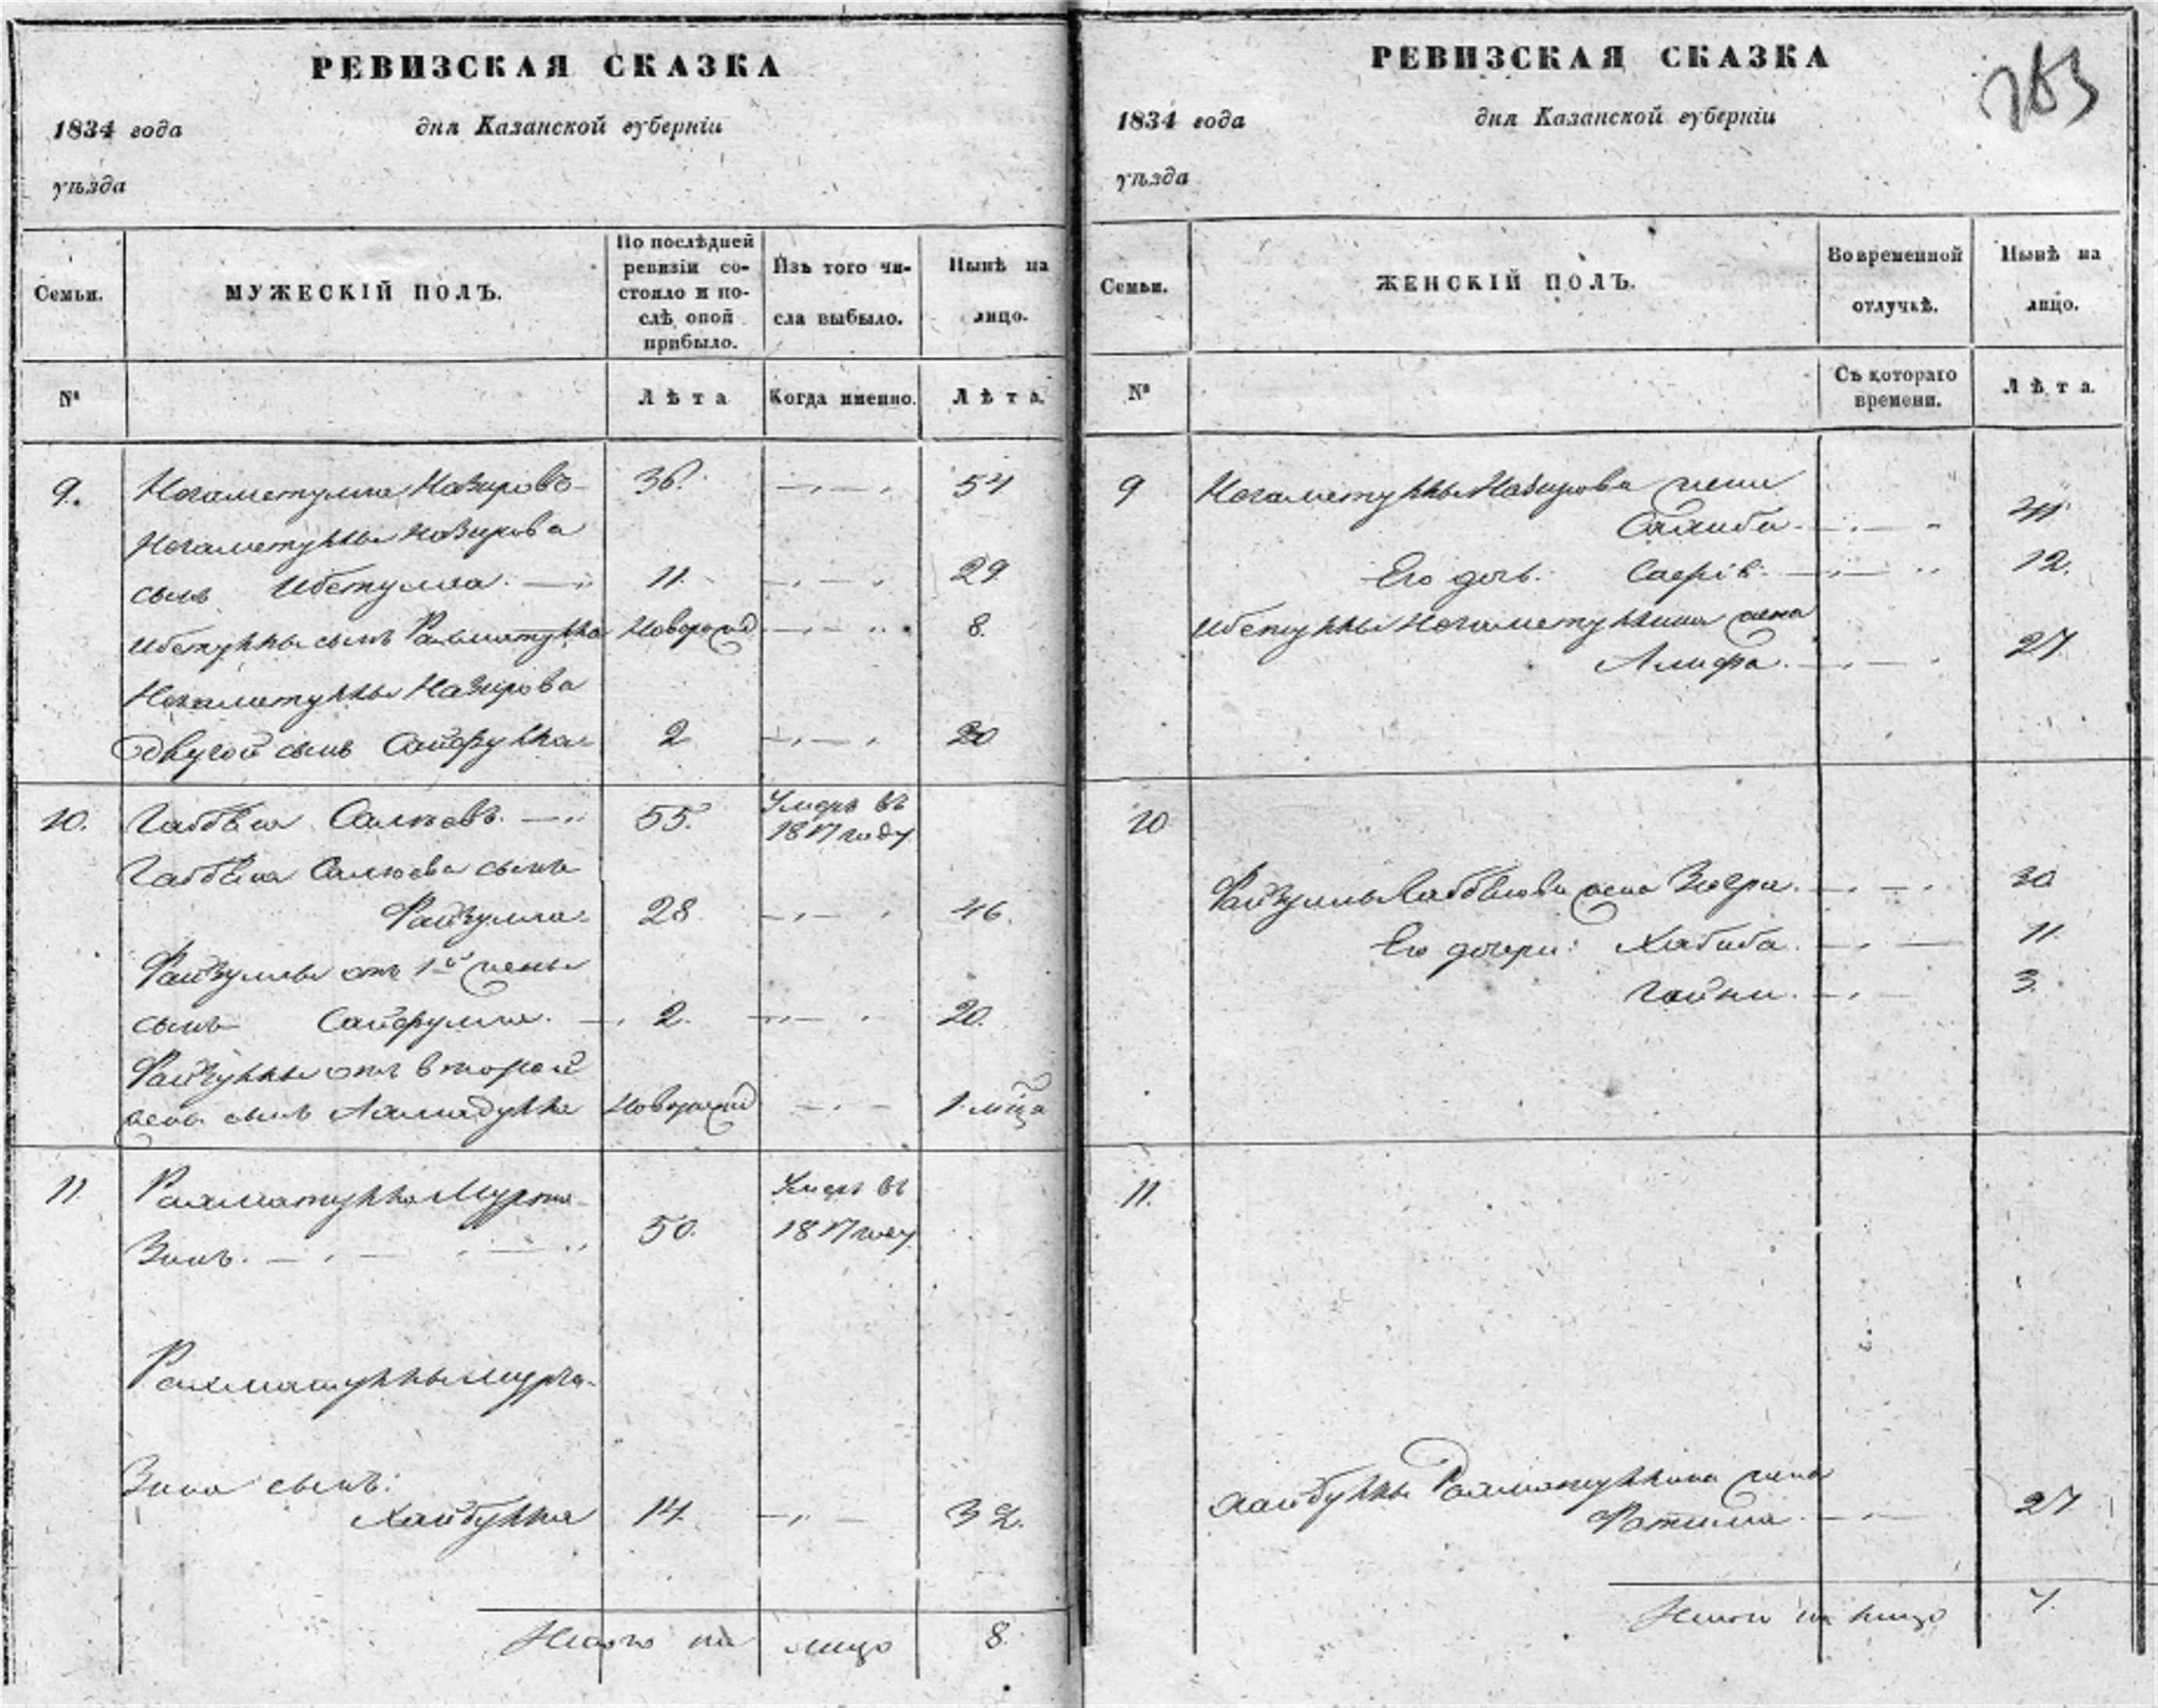 РЕВИЗСКАЯ СКАЗКА
1834 года дня Казанской губерніи
уѣзда
Семьи.
МУЖЕСКІЙ ПОЛЪ.
По послѣдней ревизіи со-
стояло и по-
слѣ оной
прибыло.
Изъ того чи-
сла выбыло.
Нынѣ на
лицо.
№
Лѣта
Когда именно.
Лѣта.
9. Негаметулла Назировъ 36. 54
Негаметуллы Назирова
сынъ Ибетулла. 11. 29
Ибетуллы сынъ Рахматулла Новорожд 8.
Негаметуллы Назирова
другой сынъ Сайфулла 2 20
10. Габбяш 55. Умеръ въ
1817 году
Габбяша сынъ
Файзулла 28. 46.
Файзуллы отъ 1й жены
сынъ Сайфулла. 2. 20.
Файзуллы отъ второй
жены сынъ Новорожд 1 мца
11 Рахматулла Мурта-
зинъ. 50. Умеръ въ
1817 году
Рахматуллы Мурта-
зина сынъ:
Хайбулла 14. 32.
Итого на лицо 8.
РЕВИЗСКАЯ СКАЗКА
263
1834 года дня Казанской губерніи
уѣзда
Семьи.
ЖЕНСКІЙ ПОЛЪ.
Во временной
отлучкѣ.
Нынѣ на
лицо.
№
Съ котораго
времени.
Лѣта.
9 Негаметуллы Назирова жена
Салиба. 41.
Его дочь. 12.
Ибетуллы Негаметуллина жена
Алифа. 27
10
Файзуллы жена Зюгра. 30
Его дочери: Хабиба. 11.
Гайни. 3.
11.
Хайбуллы Рахматуллина жена
Фатима. 27
Итого на лицо 7.